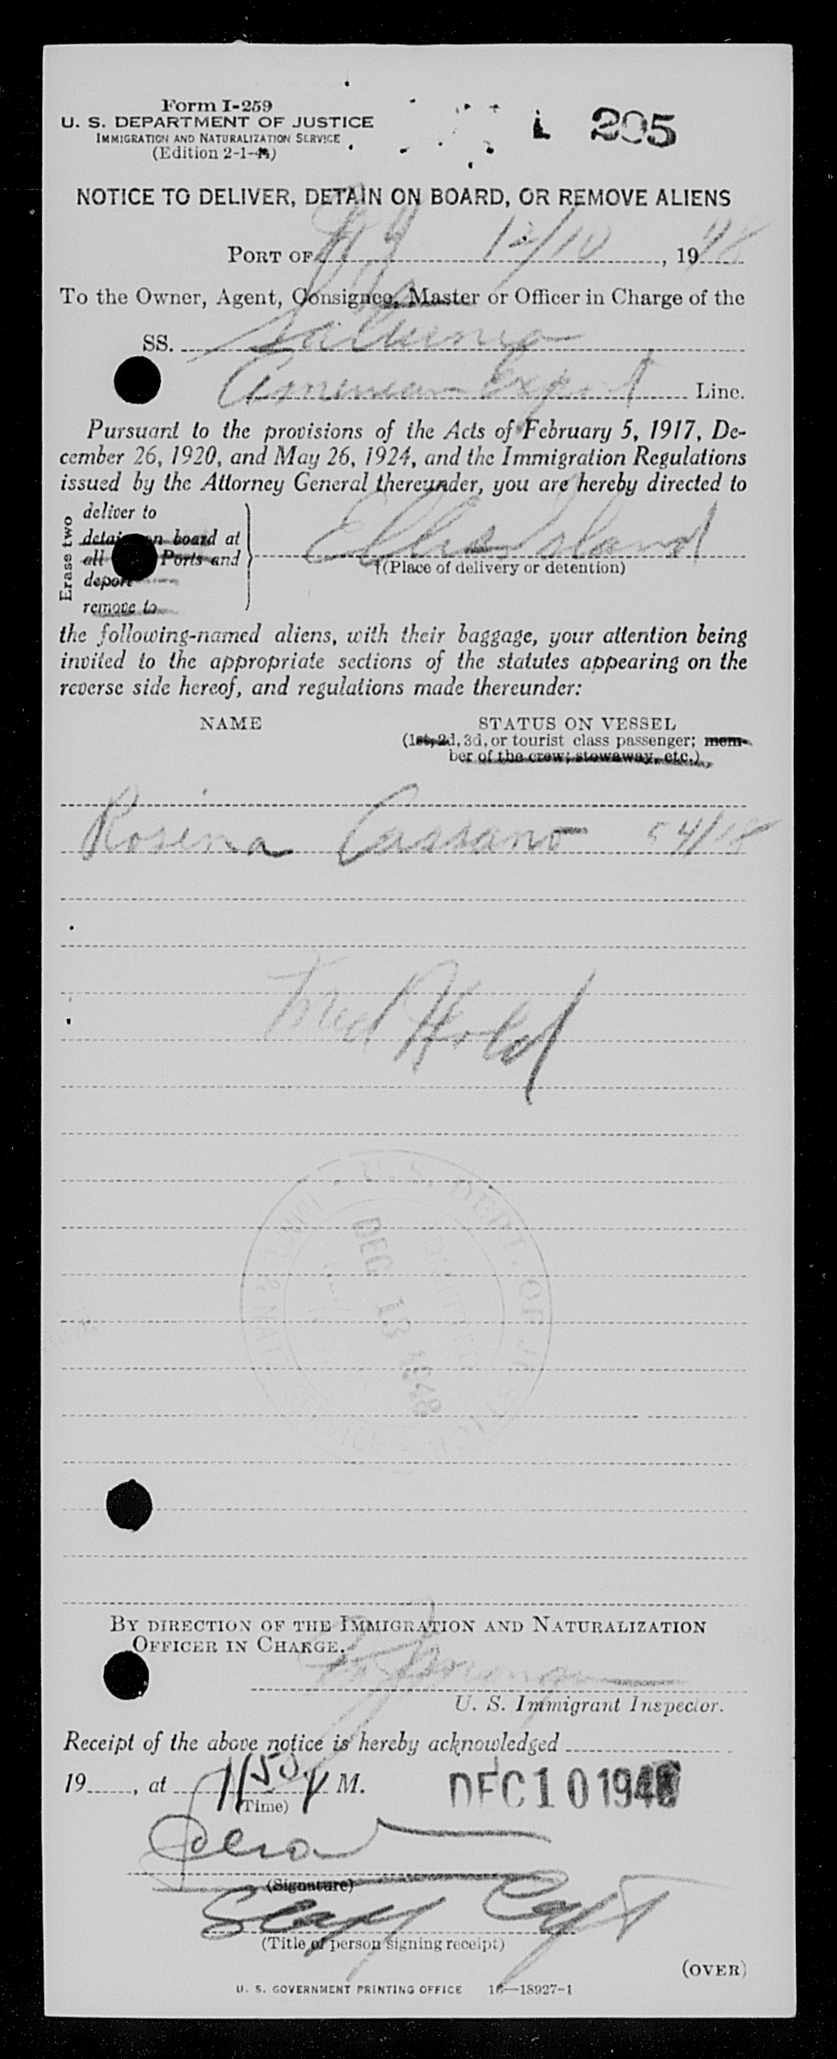 Form I-259
U. S. DEPARTMENT OF JUSTICE
IMMIGRATION AND NATURALIZATION SERVICE
(Edition 2-1-
295
NOTICE TO DELIVER, DETAIN ON BOARD, OR REMOVE ALIENS
PORT OF N Y 12/10, 1948
To the Owner, Agent, Consignee, Master or Officer in Charge of the
SS. Saturnia
American Export Line.
Pursuant to the provisions of the Acts of February 5, 1917, De-
cember 26, 1920, and May 26, 1924, and the Immigration Regulations
issued by the Attorney General thereunder, you are hereby directed to
Erase two
deliver to
detain on board at
all Ports and
deport
remove to
Ellis Island
†(Place of delivery or detention)
the following-named aliens, with their baggage, your attention being
invited to the appropriate sections of the statutes appearing on the
reverse side hereof, and regulations made thereunder:
NAME STATUS ON VESSEL
(1st, 2d, 3d, or tourist class passenger; mem-
ber of the crew; stowaway, etc.)
Rosina Cassano 54/18
Med Hold
U. S. DEPT. OF JUSTICE
DEC 13 1948
BY DIRECTION OF THE IMMIGRATION AND NATURALIZATION
OFFICER IN CHARGE.
U. S. Immigrant Inspector.
Receipt of the above notice is hereby acknowledged
19, at 1150 M. DEC 10 1948
(Time)
(Signature)
Staff Capt
(Title of person signing receipt)
(OVER)
U. S. GOVERNMENT PRINTING OFFICE 16—18927-1